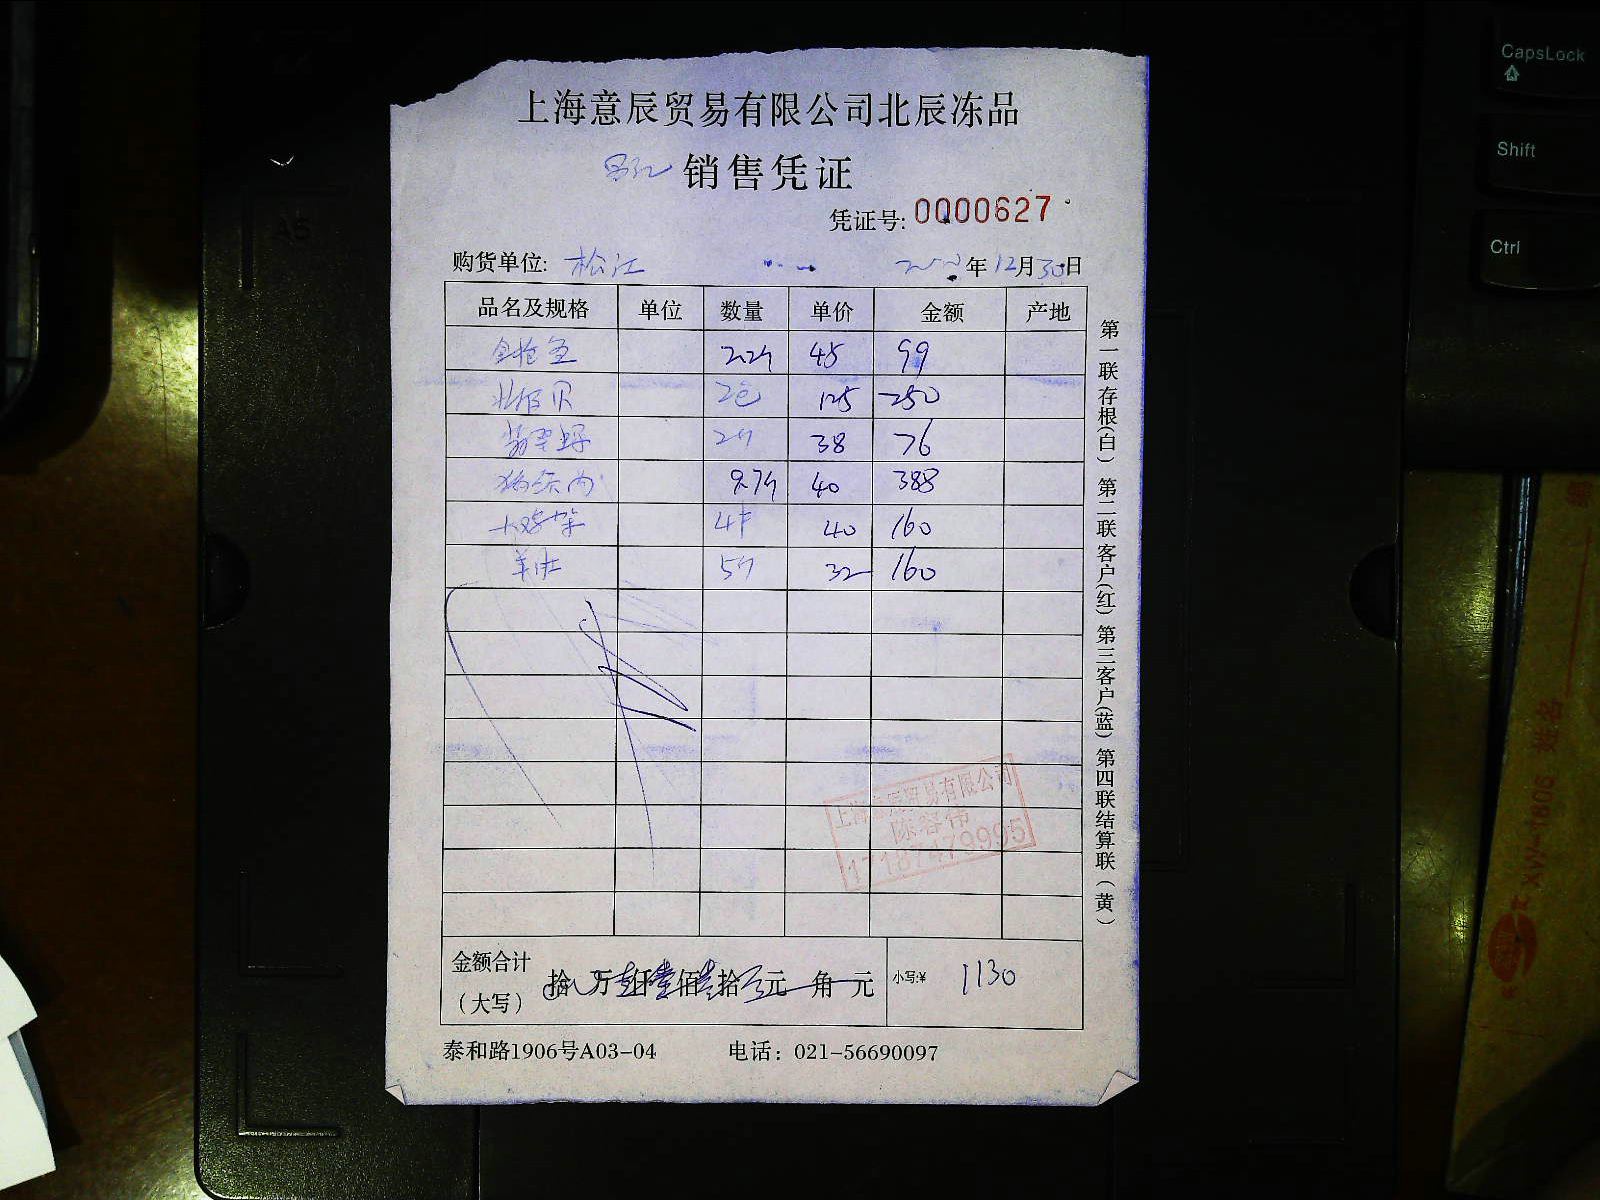 上海意辰贸易有限公司北辰冻品
销售凭证
凭证号: 0000627
购货单位: 松江 年12月30日
品名及规格 单位 数量 单价 金额 产地
金枪鱼 2.2斤 45 99
北极贝 2包 125 250
翡翠螺 2斤 38 76
9.7斤 40 388
4 40 160
羊肚 5斤 32 160
金额合计
(大写)
拾 万 仟壹佰 拾 元 角 元 小写:¥ 1130
泰和路1906号A03-04 电话: 021-56690097
第一联存根(白) 第二联客户(红) 第三客户(蓝) 第四联结算联(黄)
上海意辰贸易有限公司
陈容伟
17187479995
CapsLock
Shift
Ctrl
A5